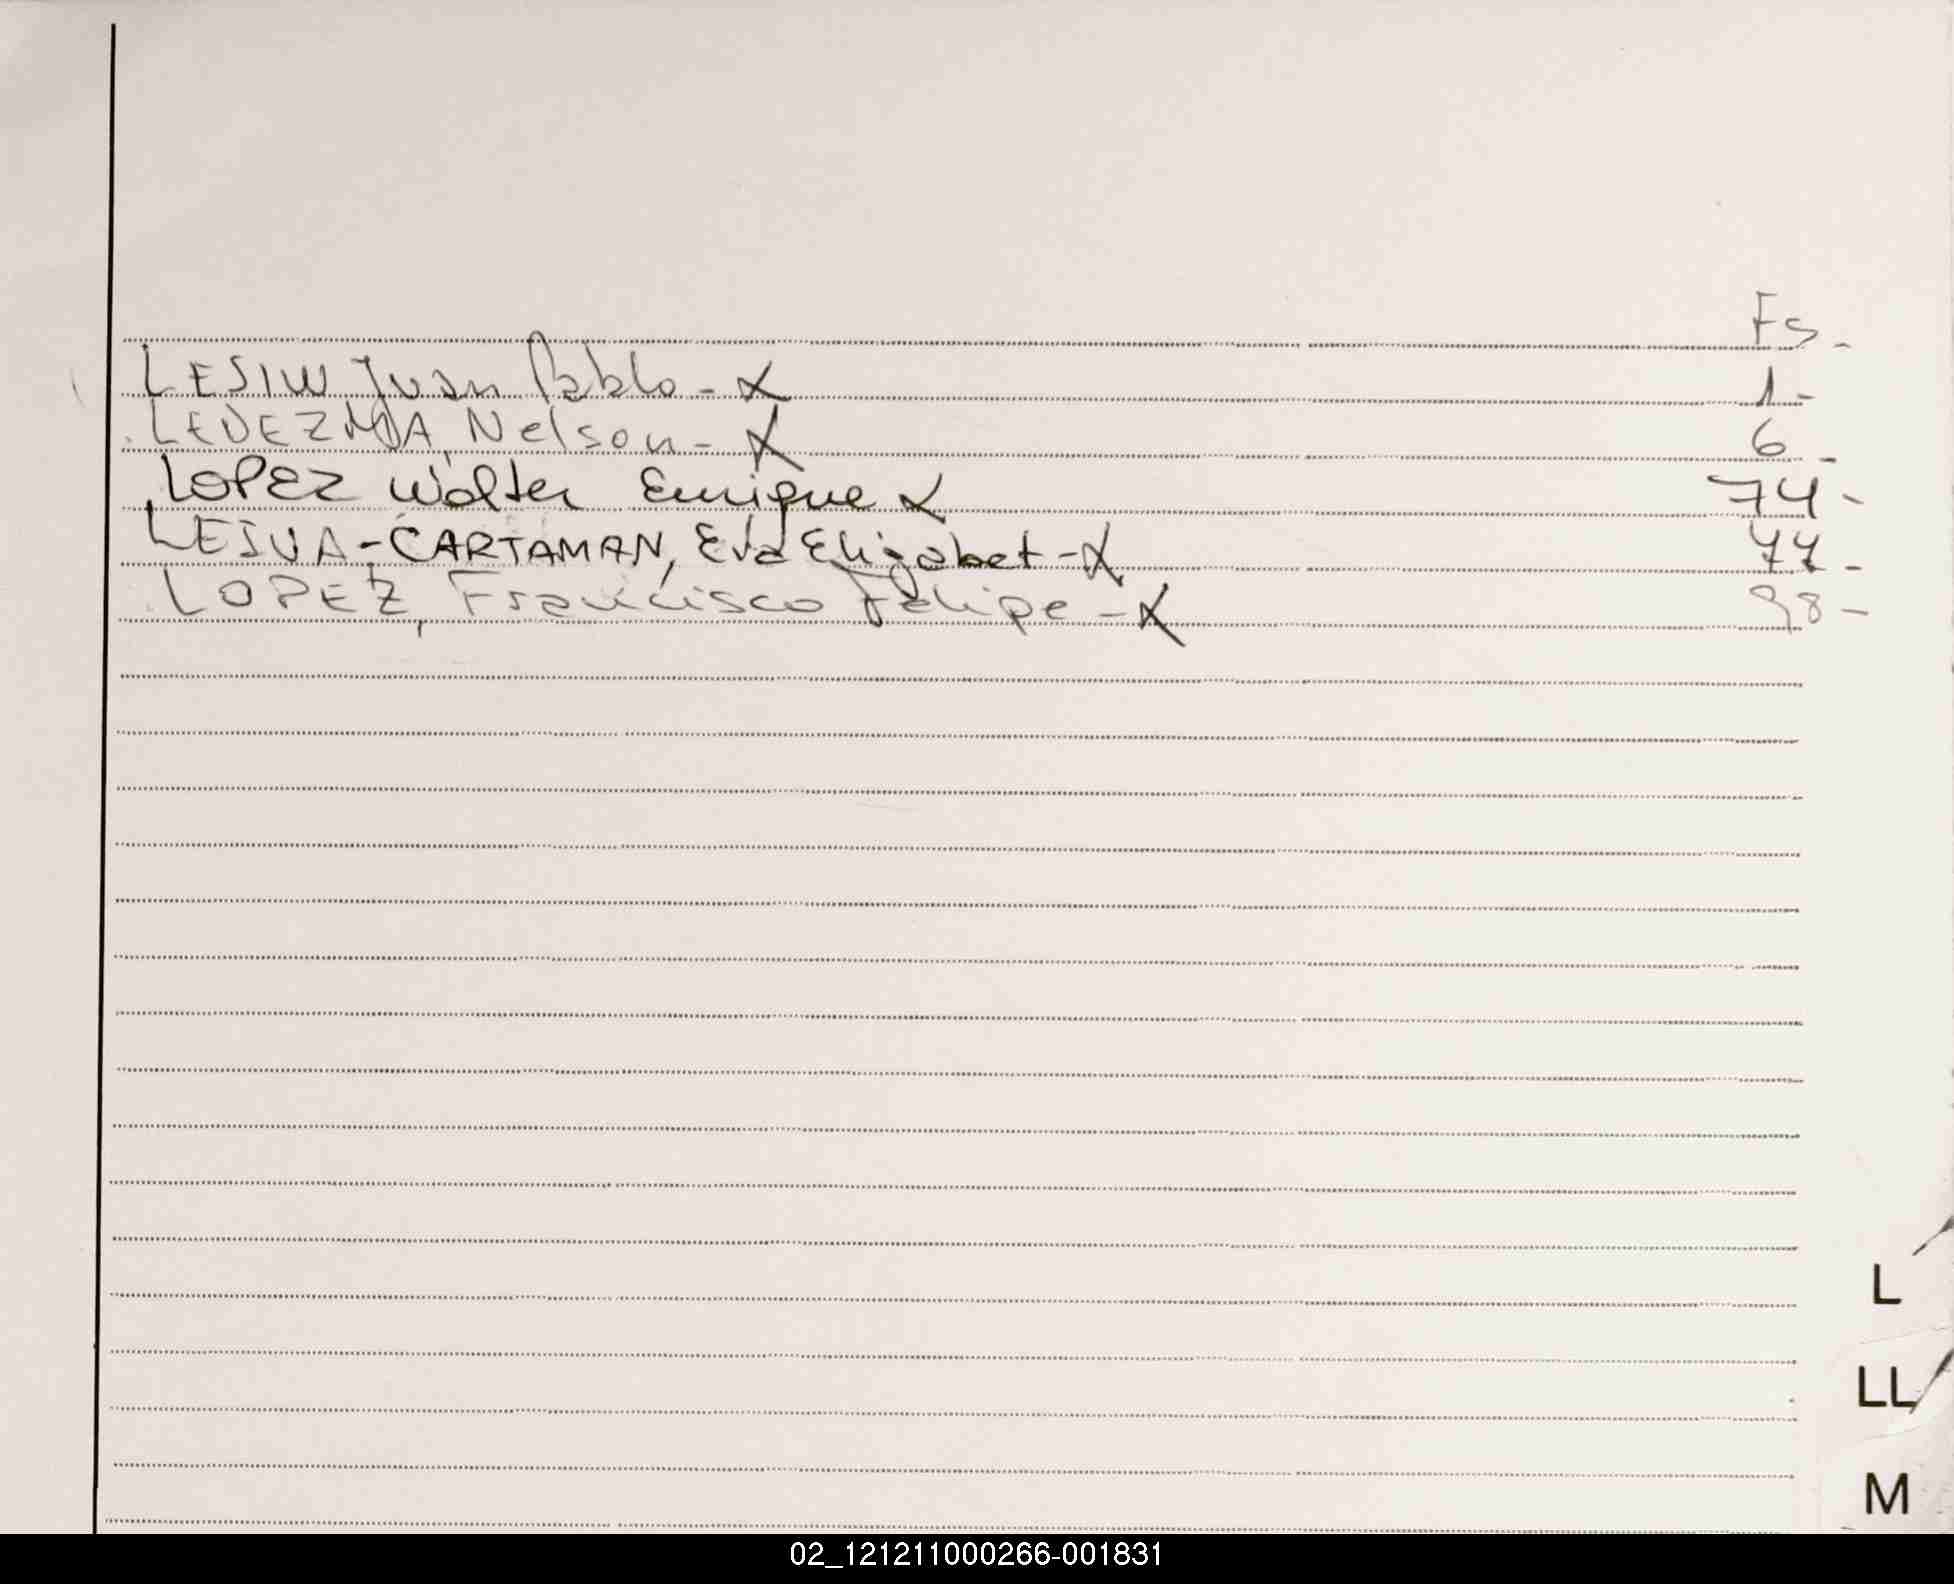 Fs -
LESIW Juan Pablo - X 1 -
LEDEZMA, Nelson - X 6 -
LOPEZ Walter Enrique X 74 -
LEIVA - CARTAMAN, Eva Elizabet - X 77 -
LOPEZ, Francisco Felipe - X 98 -
L
LL
M
02_121211000266-001831